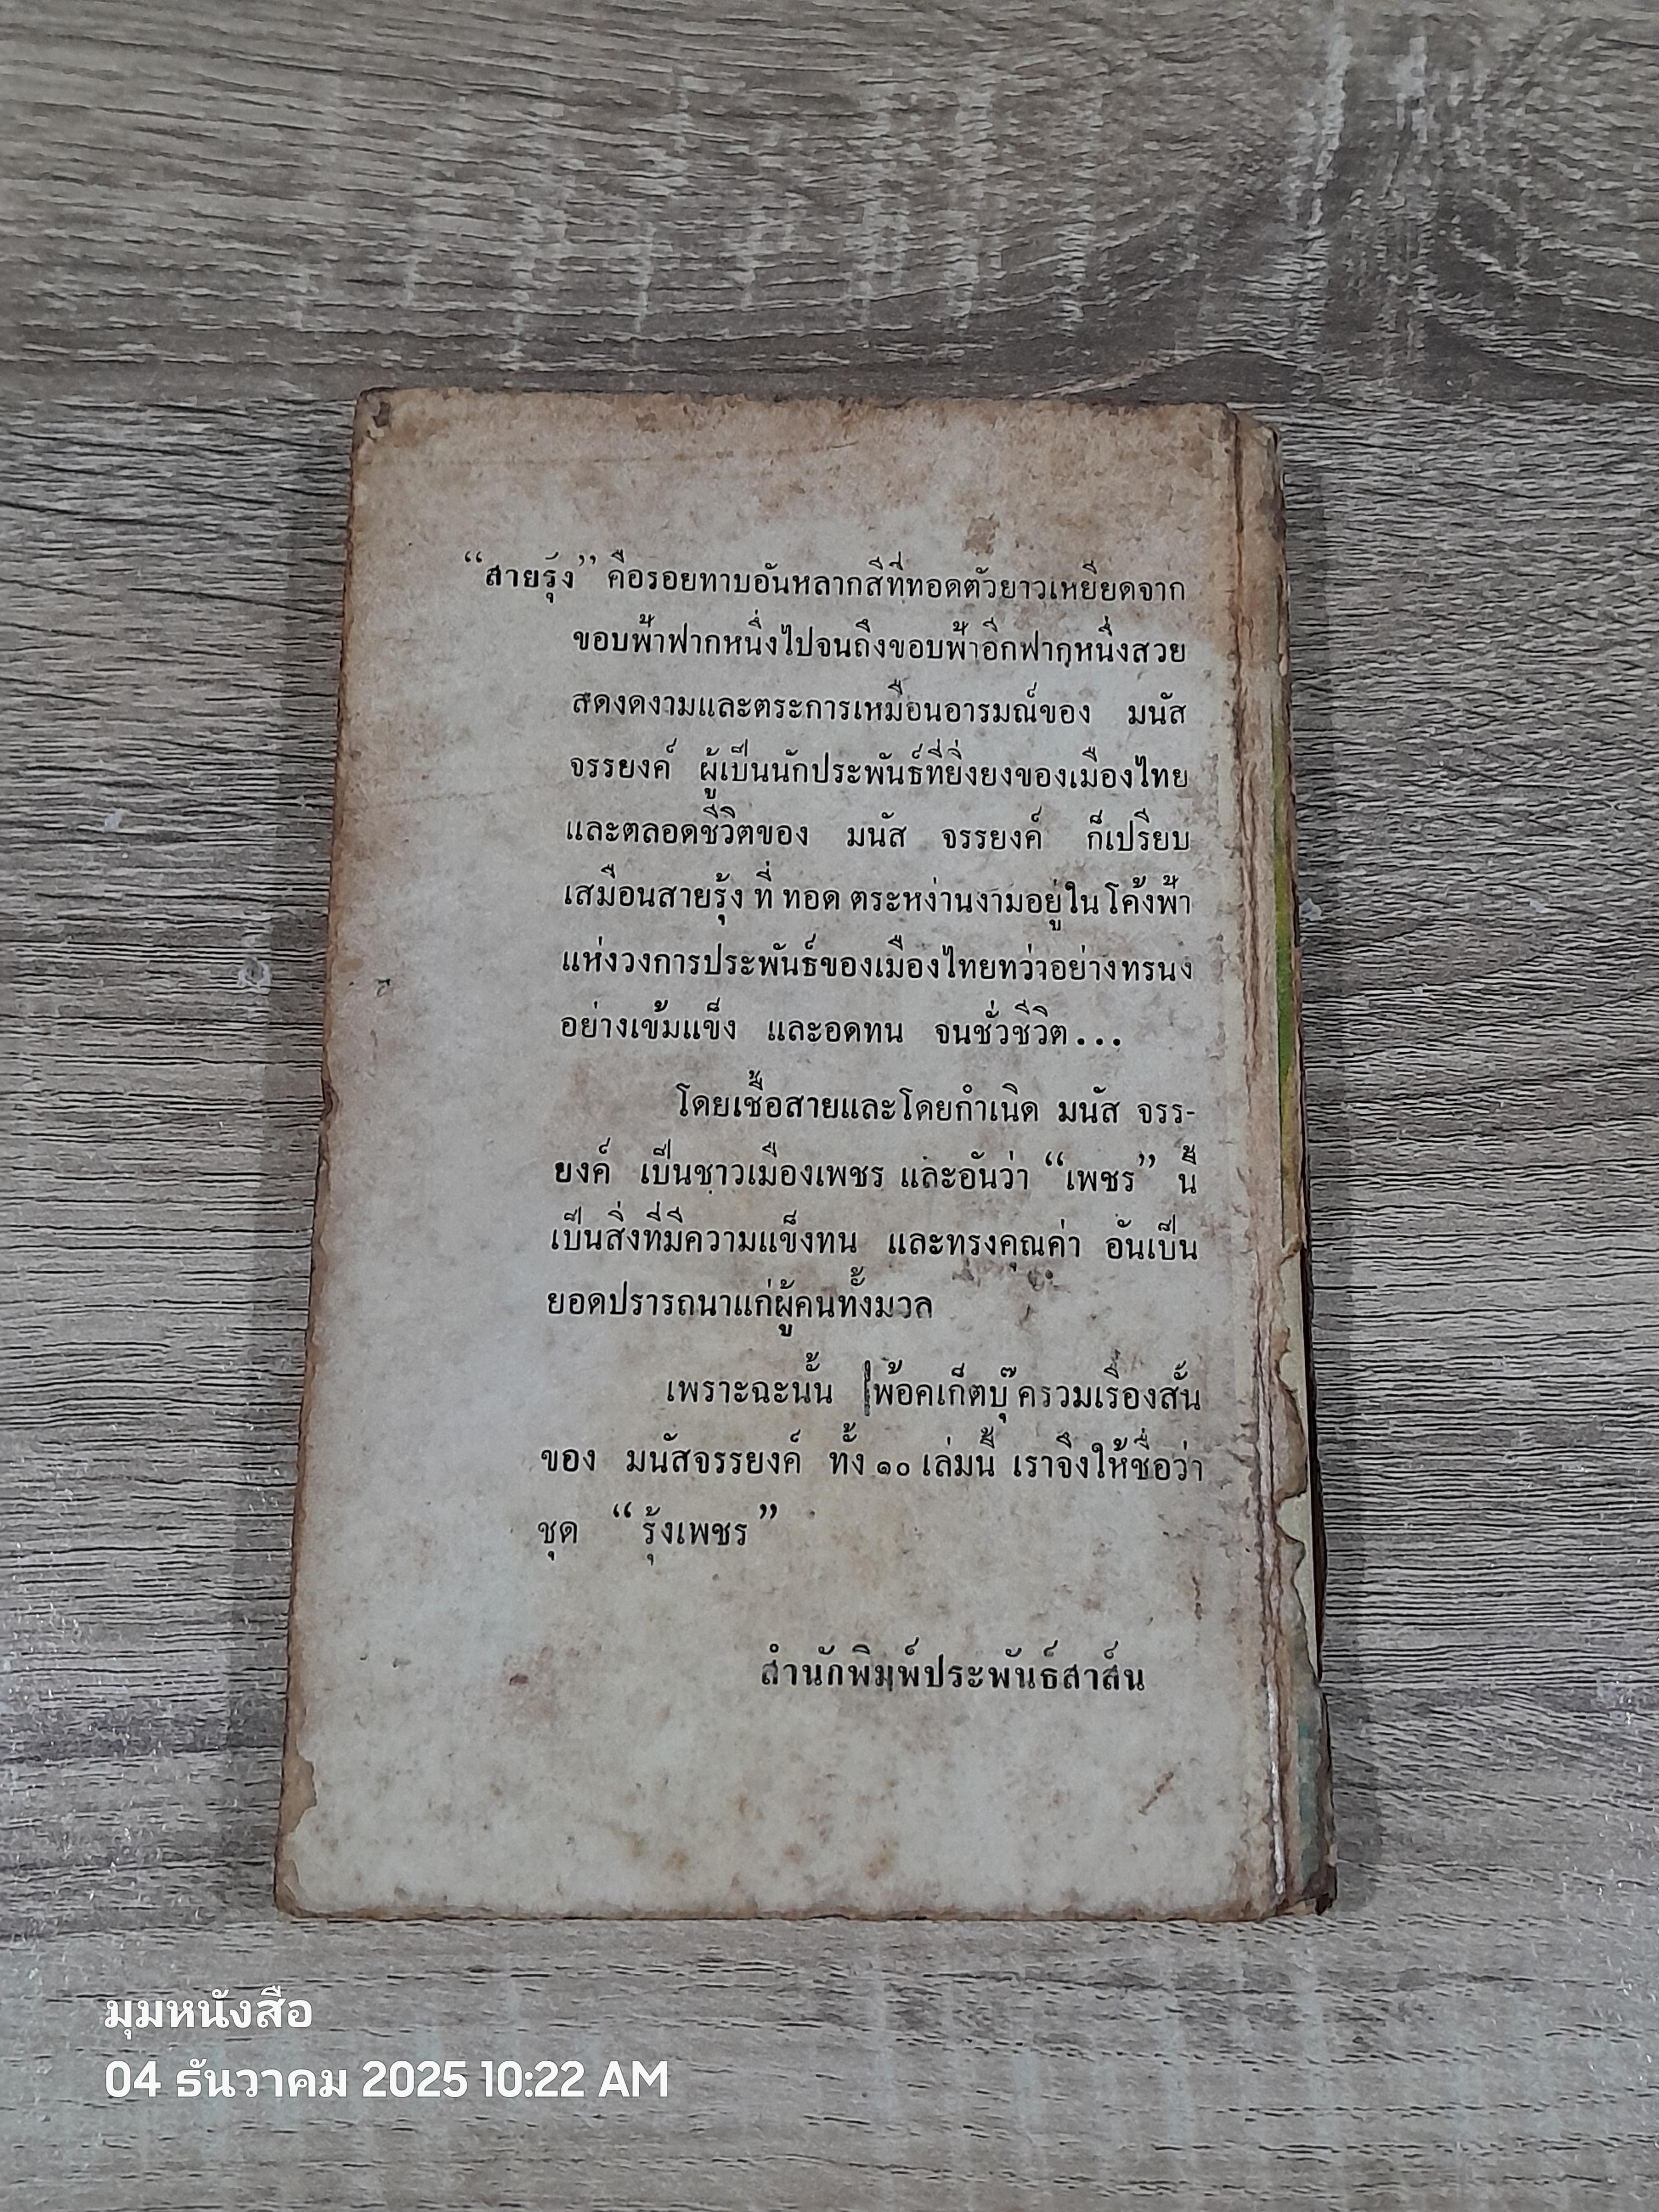 “สายรุ้ง” คือรอยทาบอันหลากสีที่ทอดตัวยาวเหยียดจาก
ขอบฟ้าฟากหนึ่งไปจนถึงขอบฟ้าอีกฟากหนึ่งสวย
สดงดงามและตระการเหมือนอารมณ์ของ มนัส
จรรยงค์ ผู้เป็นนักประพันธ์ที่ยิ่งยงของเมืองไทย
และตลอดชีวิตของ มนัส จรรยงค์ ก็เปรียบ
เสมือนสายรุ้ง ที่ ทอด ตระหง่านงามอยู่ใน โค้งฟ้า
แห่งวงการประพันธ์ของเมืองไทยทว่าอย่างทรนง
อย่างเข้มแข็ง และอดทน จนชั่วชีวิต...
โดยเชื้อสายและโดยกำเนิด มนัส จรร-
ยงค์ เป็นชาวเมืองเพชร และอันว่า “เพชร” นี้
เป็นสิ่งที่มีความแข็งทน และทรงคุณค่า อันเป็น
ยอดปรารถนาแก่ผู้คนทั้งมวล
เพราะฉะนั้น พ้อคเก็ตบุ๊ครวมเรื่องสั้น
ของ มนัสจรรยงค์ ทั้ง ๑๐ เล่มนี้ เราจึงให้ชื่อว่า
ชุด “รุ้งเพชร”
สำนักพิมพ์ประพันธ์สาส์น
มุมหนังสือ
04 ธันวาคม 2025 10:22 AM